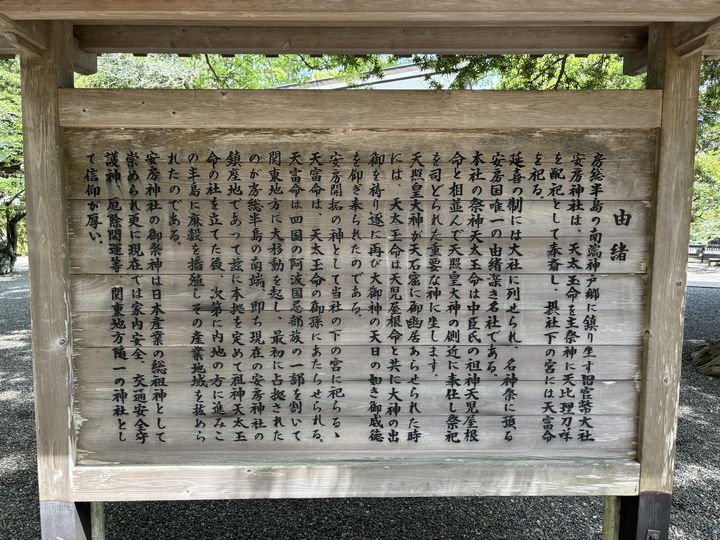 由緒
房総半島の南端神戸郷に鎮り生す旧官幣大社
安房神社は、天太玉命を主祭神に天比理刀咩命
を配祀として奉斎し、摂社下の宮には天富命
を祀る。
延喜の制には大社に列せられ、名神祭に預る
安房国唯一の由緒深き名社である。
本社の祭神天太玉命は中臣氏の祖神天児屋根
命と相並んで天照皇大神の側近に奉仕し祭祀
を司どられた重要な神に生します。
天照皇大神が天石窟に御幽居あらせられた時
には、天太玉命は天児屋根命と共に大神の出
御を祷り遂に再び大御神の天日の如き御威徳
を仰ぎ奉られたのである。
安房開拓の神として当社の下の宮に祀らるゝ
天富命は、天太玉命の御孫にあたらせられる。
天富命は四国の阿波国忌部族の一部を割いて
関東地方に大移動を起し、最初に占拠された
のが房総半島の南端、即ち現在の安房神社の
鎮座地であって茲に本拠を定めて祖神天太玉
命の社を立てた後、次第に内地の方に進みこ
の半島に麻穀を播殖しその産業地域を拡めら
れたのである。
安房神社の御祭神は日本産業の総祖神として
崇められ更に現在では家内安全、交通安全守
護神、厄除開運等、関東地方隨一の神社とし
て信仰が厚い。